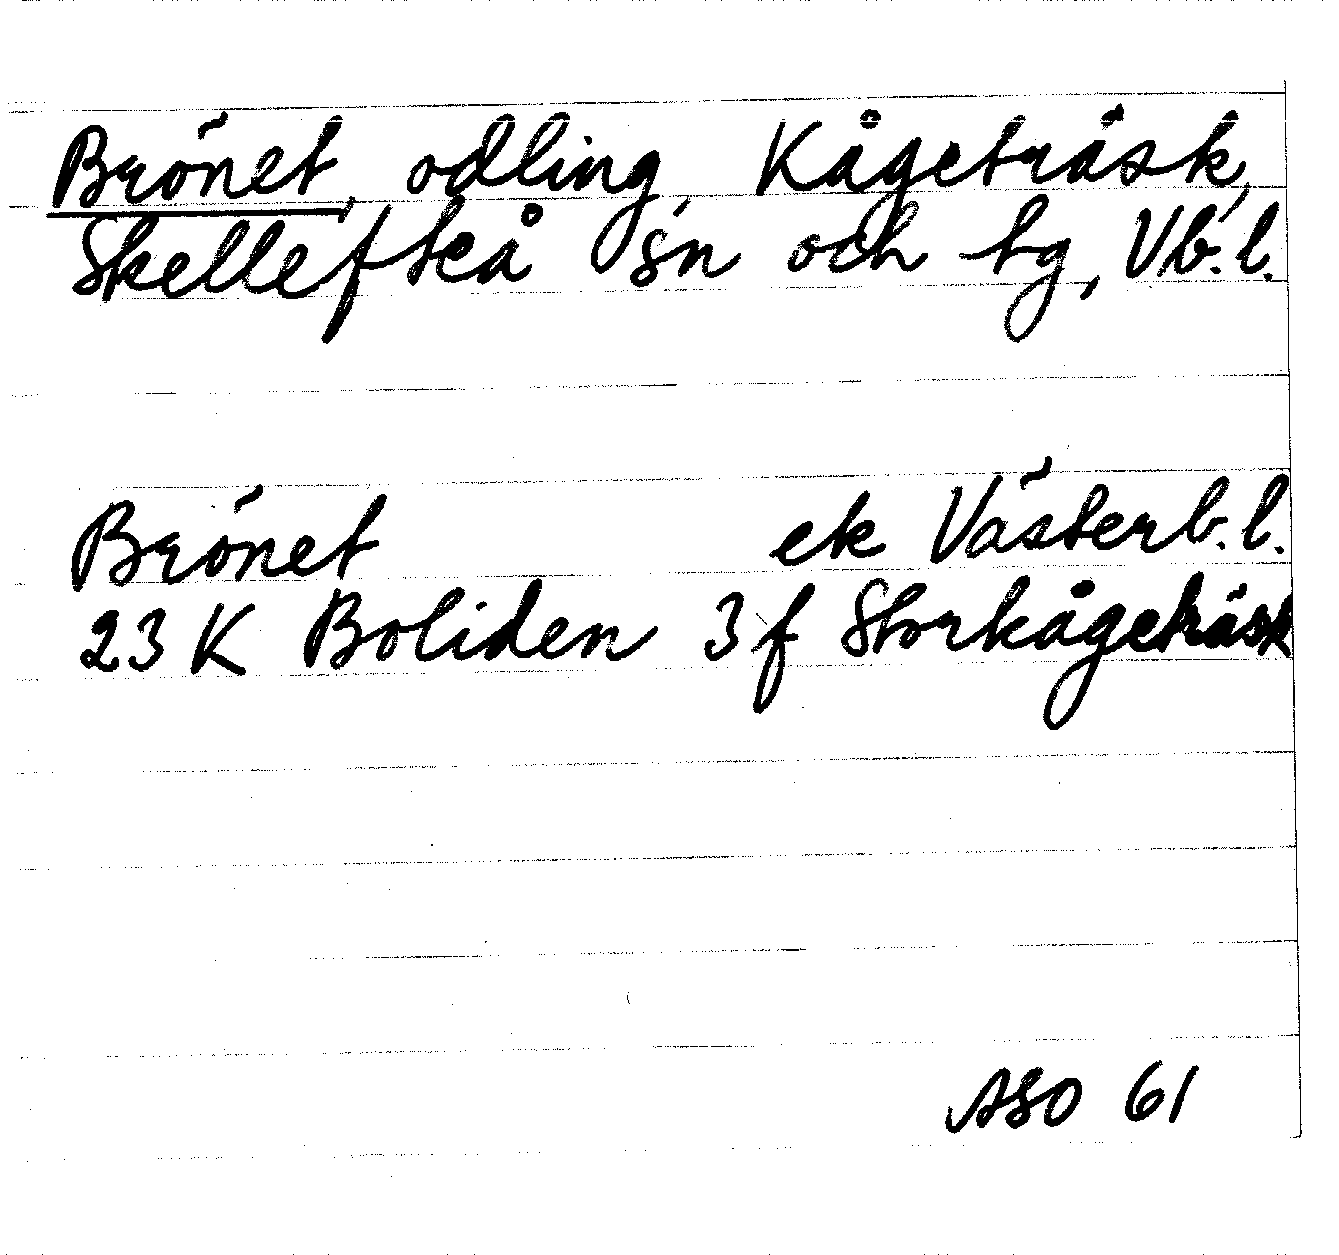 Brönet, odling, Kågeträsk,
Skellefteå sn och tg, Vb. l.
Brönet ek Västerb. l.
23 K Boliden 3 f Storkågeträsk
ASO 61